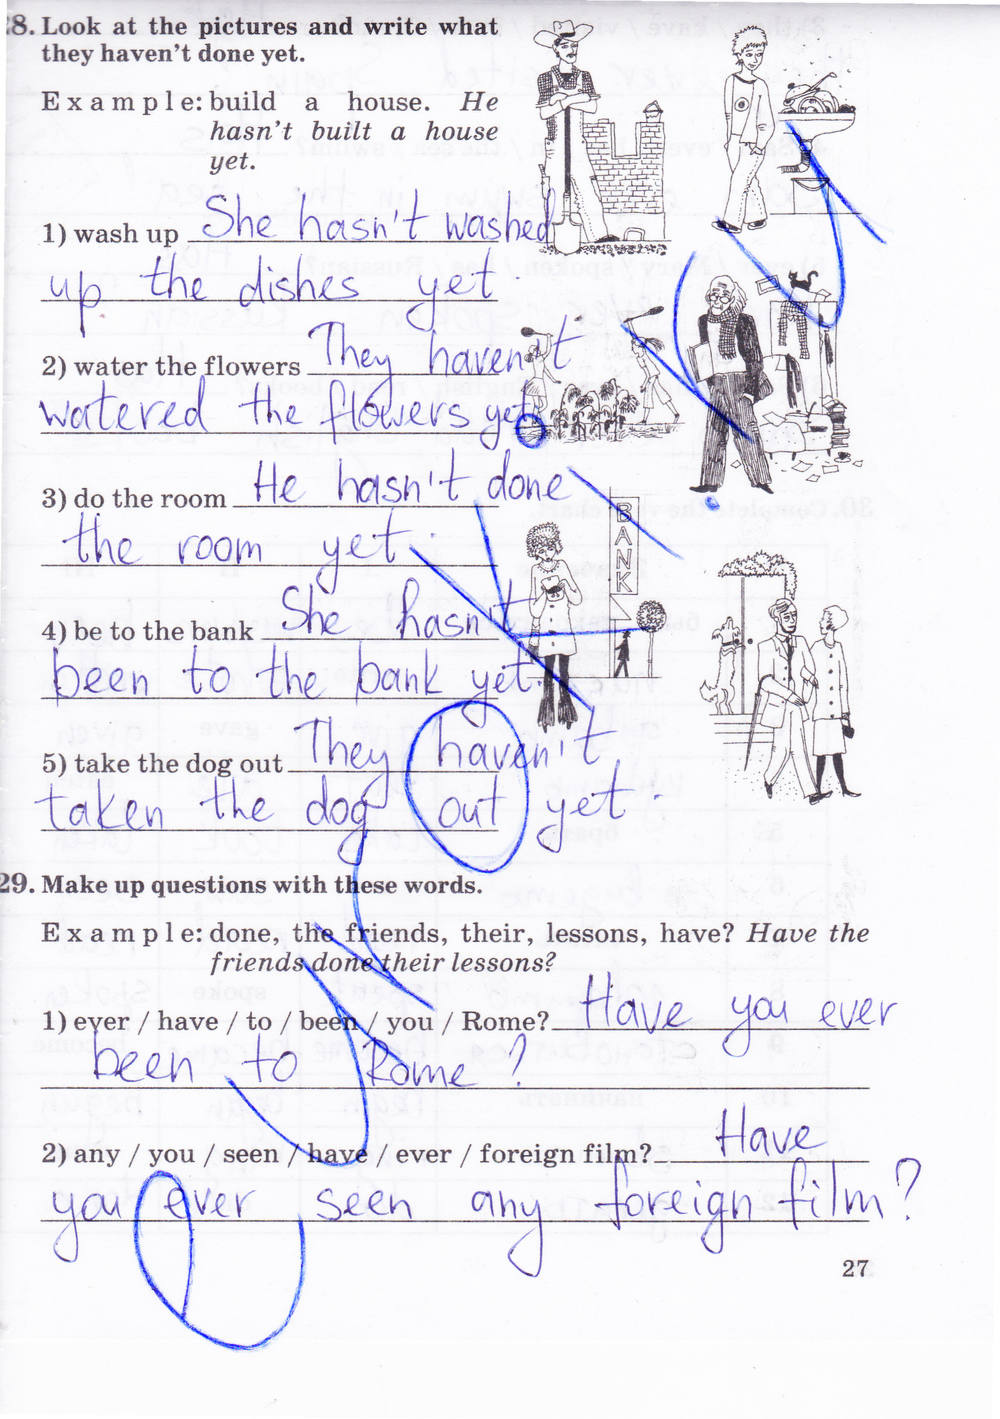 28. Look at the pictures and write what
they haven't done yet.
Example: build a house. He
hasn't built a house
yet.
1) wash up She hasn't washed
up the dishes yet
2) water the flowers They haven't
watered the flowers yet
3) do the room He hasn't done
the room yet.
BANK
4) be to the bank She hasn't
been to the bank yet.
5) take the dog out They haven't
taken the dog out yet.
29. Make up questions with these words.
Example: done, the friends, their, lessons, have? Have the
friends done their lessons?
1) ever / have / to / been / you / Rome? Have you ever
been to Rome?
2) any / you / seen / have / ever / foreign film? Have
you ever seen any foreign film?
27